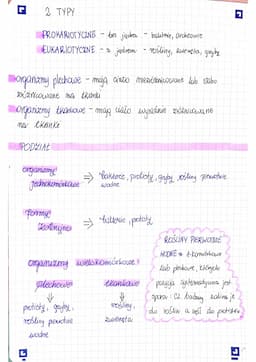 2 TYPY
PROKARIOTYCZNE - bez jądra - bakterie, archeowce
EUKARIOTYCZNE - z jądrem - rośliny, zwierzęta, grzyby
organizmy plechowe - mają ciało niezróżnicowane lub słabo
zróżnicowane na tkanki
organizmy tkankowe - mają ciało wyraźnie zróżnicowane
na tkanki
PODZIAŁ
organizmy jednokomórkowe ⇒ bakterie, protisty, grzyby, rośliny pierwotnie
wodne
formy kolonijne ⇒ bakterie, protisty
organizmy wielokomórkowe
plechowe tkankowe
protisty, grzyby, rośliny,
rośliny pierwotnie zwierzęta
wodne
ROŚLINY PIERWOTNIE
WODNE = 1-komórkowe
lub plechowe, których
pozycja systematyczna jest
sporna: cz. badaczy zalicza je
do roślin a część do protistów